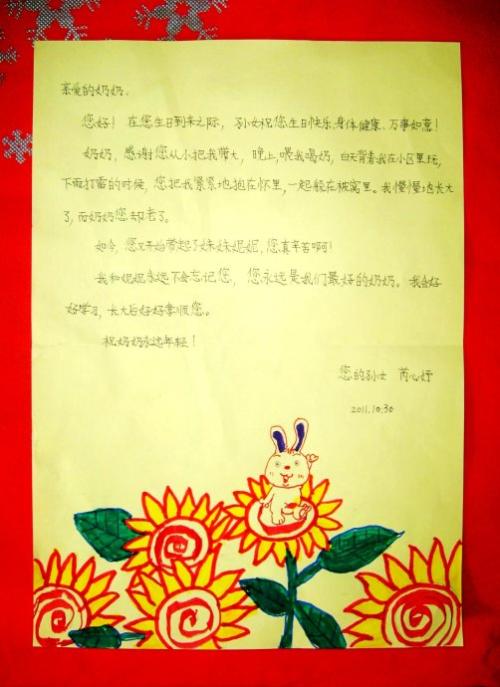 亲爱的奶奶：
您好！在您生日到来之际，孙女祝您生日快乐、身体健康、万事如意！
奶奶，感谢您从小把我带大，晚上喂我喝奶，白天背着我在小区里玩，
下雨打雷的时候，您把我紧紧地抱在怀里，一起躲在被窝里。我慢慢地长大
了，而奶奶您却老了。
如今，您又开始带起了妹妹妮妮，您真辛苦啊！
我和妮妮永远不会忘记您，您永远是我们最好的奶奶。我会好
好学习，长大后好好孝顺您。
祝奶奶永远年轻！
您的孙女 芮心妤
2011.10.30